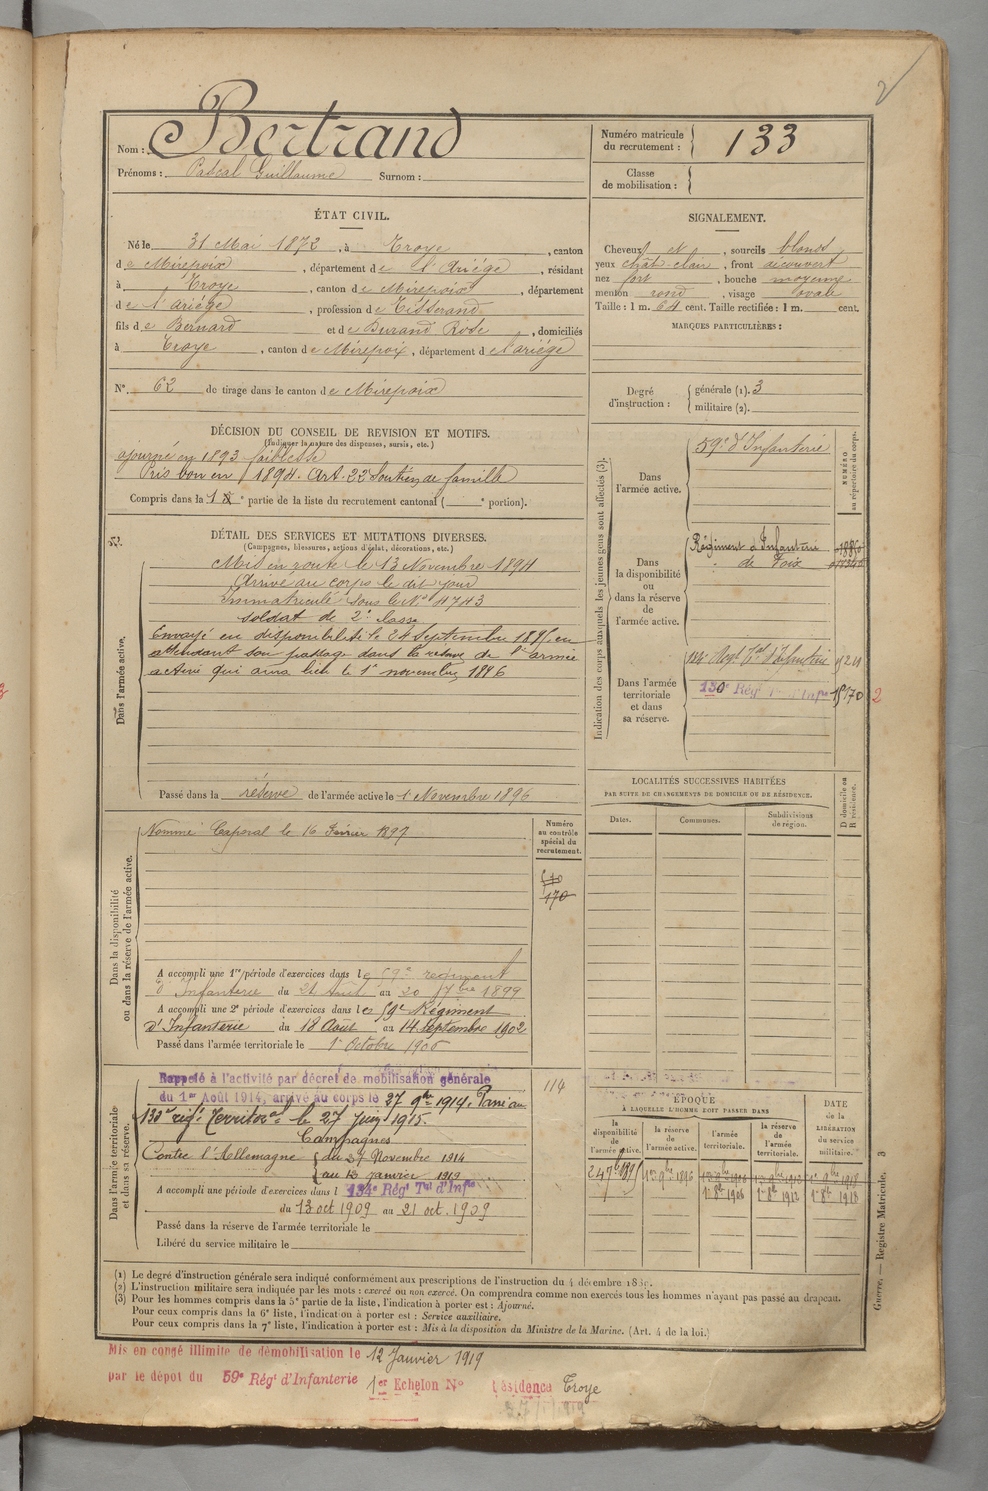 2
Bertrand
Nom :
Prénoms : Pascal Guillaume Surnom :
Numéro matricule du recrutement : 133
Classe de mobilisation :
ÉTAT CIVIL.
Né le 31 Mai 1872, à Troye, canton
de Mirepoix, département de l'Ariége, résidant
à Troye, canton de Mirepoix, département
de l'ariége, profession de Tisserand
fils de Bernard et de Durand Rose, domiciliés
à Troye, canton de Mirepoix, département de l'ariége
N°. 62 de tirage dans le canton de Mirepoix
SIGNALEMENT.
Cheveux et, sourcils blonds
yeux chât-clair, front découvert
nez fort, bouche moyenne
menton rond, visage ovale
Taille : 1 m. 64 cent. Taille rectifiée : 1 m. cent.
MARQUES PARTICULIÈRES :
Degré d'instruction : générale (1). 3
militaire (2).
DÉCISION DU CONSEIL DE REVISION ET MOTIFS.
(Indiquer la nature des dispenses, sursis, etc.)
ajourné en 1893 faiblesse
Pris bon en 1894. Art. 22 Soutien de famille
Compris dans la 1e partie de la liste du recrutement cantonal ( e portion).
DÉTAIL DES SERVICES ET MUTATIONS DIVERSES.
(Campagnes, blessures, actions d'éclat, décorations, etc.)
Dans l'armée active.
Mis en route le 13 Novembre 1894
Arrivé au corps le dit jour
Immatriculé sous le N° 4743
soldat de 2e classe
Envoyé en disponibilité le 24 Septembre 1895 en
attendant son passage dans la réserve de l'armée
active qui aura lieu le 1er novembre 1896
Passé dans la réserve de l'armée active le 1er Novembre 1896
Indication des corps auxquels les jeunes gens sont affectés (3).
NUMÉRO au répertoire du corps.
Dans l'armée active.
59e d'Infanterie
Dans la disponibilité ou dans la réserve de l'armée active.
Régiment d'Infanterie
de Foix
Dans l'armée territoriale et dans sa réserve.
134e Régt Tal d'Infanterie
130e Rég
2
LOCALITÉS SUCCESSIVES HABITÉES
PAR SUITE DE CHANGEMENTS DE DOMICILE OU DE RÉSIDENCE.
Dates. Communes. Subdivisions de région. D domicile ou R résidence.
Dans la disponibilité ou dans la réserve de l'armée active.
Nommé Caporal le 16 Février 1897
Numéro au contrôle spécial du recrutement.
170
A accompli une 1re période d'exercices dans le 59e régiment
d'Infanterie du 24 Août au 20 7bre 1899
A accompli une 2e période d'exercices dans le 59e Régiment
d'Infanterie du 18 Août au 14 Septembre 1902
Passé dans l'armée territoriale le 1er Octobre 1906
Dans l'armée territoriale et dans sa réserve.
Rappelé à l'activité par décret de mobilisation générale
du 1er Août 1914, arrivé au corps le 27 9bre 1914. Passé au
133e régt Territorial le 27 Juin 1915.
Campagnes
Contre l'Allemagne du 27 Novembre 1914
au 12 janvier 1919
A accompli une période d'exercices dans l 134e Régt Tal d'Infie
du 13 oct 1909 au 21 oct. 1909
Passé dans la réserve de l'armée territoriale le
Libéré du service militaire le
114
ÉPOQUE
À LAQUELLE L'HOMME DOIT PASSER DANS
la disponibilité de l'armée active. la réserve de l'armée active. l'armée territoriale. la réserve de l'armée territoriale. DATE de la LIBÉRATION du service militaire.
24 7bre 1895 1er 9bre 1896
1er 8bre 1906 1er 8bre 1912 1er 8bre 1918
Guerre. — Registre Matricule. 3
(1) Le degré d'instruction générale sera indiqué conformément aux prescriptions de l'instruction du 4 décembre 1889.
(2) L'instruction militaire sera indiquée par les mots : exercé ou non exercé. On comprendra comme non exercés tous les hommes n'ayant pas passé au drapeau.
(3) Pour les hommes compris dans la 5e partie de la liste, l'indication à porter est : Ajourné.
Pour ceux compris dans la 6e liste, l'indication à porter est : Service auxiliaire.
Pour ceux compris dans la 7e liste, l'indication à porter est : Mis à la disposition du Ministre de la Marine. (Art. 4 de la loi.)
Mis en congé illimité de démobilisation le 12 Janvier 1919
par le dépot du 59e Régt d'Infanterie 1er Echelon N° Résidence Troye